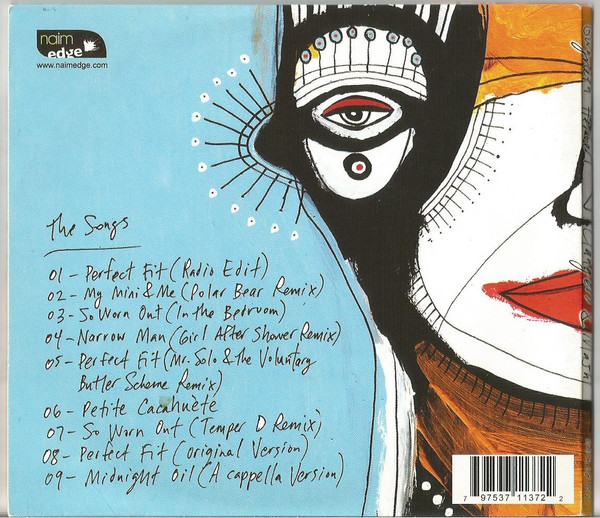 naim
edge
www.naimedge.com
The Songs
01 - Perfect Fit (Radio Edit)
02 - My Mini & Me (Polar Bear Remix)
03 - So Worn Out (In the Bedroom)
04 - Narrow Man (Girl After Shower Remix)
05 - Perfect Fit (Mr. Solo & the Voluntary
Butler Scheme Remix)
06 - Petite Cacahuète
07 - So Worn Out (Temper D Remix)
08 - Perfect Fit (original Version)
09 - Midnight Oil (A cappella Version)
7 97537 11372 2